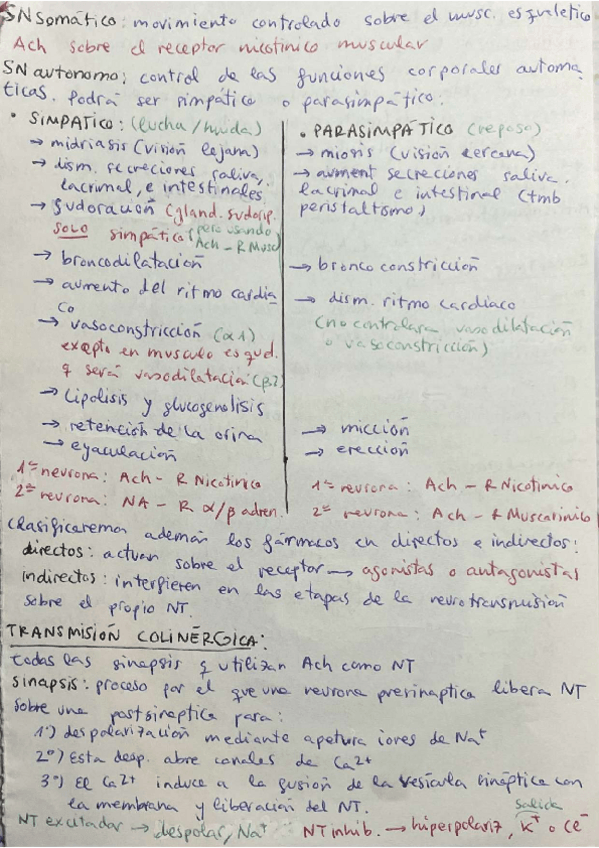 SN somático: movimiento controlado sobre el musc. esquelético
Ach sobre el receptor nicotínico muscular
SN autonomo: control de las funciones corporales automa
ticas. Podrá ser simpático o parasimpático.
• SIMPATICO: (lucha/huida)
→ midriasis (visión lejana)
→ dism. secreciones saliva,
lacrimal, e intestinales
→ sudoración (gland. sudorip.
SOLO simpática (pero usando
Ach - R Musc)
→ broncodilatación
→ aumento del ritmo cardia
co
→ vasoconstricción (α1)
exepto en musculo esquel.
q será vasodilatación (β2)
→ lipolisis y glucogenolisis
→ retención de la orina
→ eyaculación
1ª neurona: Ach - R Nicotinico
2ª neurona: NA - R α/β adren.
• PARASIMPÁTICO (reposo)
→ miosis (visión cercana)
→ aument secreciones saliva.
lacrimal e intestinal (tmb
peristaltismo)
→ bronco constricción
→ dism. ritmo cardiaco
(no controlara vasodilatación
o vasoconstricción)
→ micción
→ erección
1ª neurona: Ach - R Nicotinico
2ª neurona: Ach - R Muscarinico
Clasificaremos además los fármacos en directos e indirectos:
directos: actuan sobre el receptor → agonistas o antagonistas
indirectos: interfieren en las etapas de la neurotransmisión
sobre el propio NT.
TRANSMISIÓN COLINÉRGICA:
todas las sinapsis q utilizan Ach como NT
sinapsis: proceso por el que una neurona presinaptica libera NT
sobre una postsinaptica para:
1º) despolarización mediante apetura iones de Na+
2º) Esta desp. abre canales de Ca2+
3º) El Ca2+ induce a la fusión de la vesícula sináptica con
la membrana y liberación del NT.
NT excitador → despolar, Na+
NT inhib. → hiperpolariz, salida K+ o Cl-